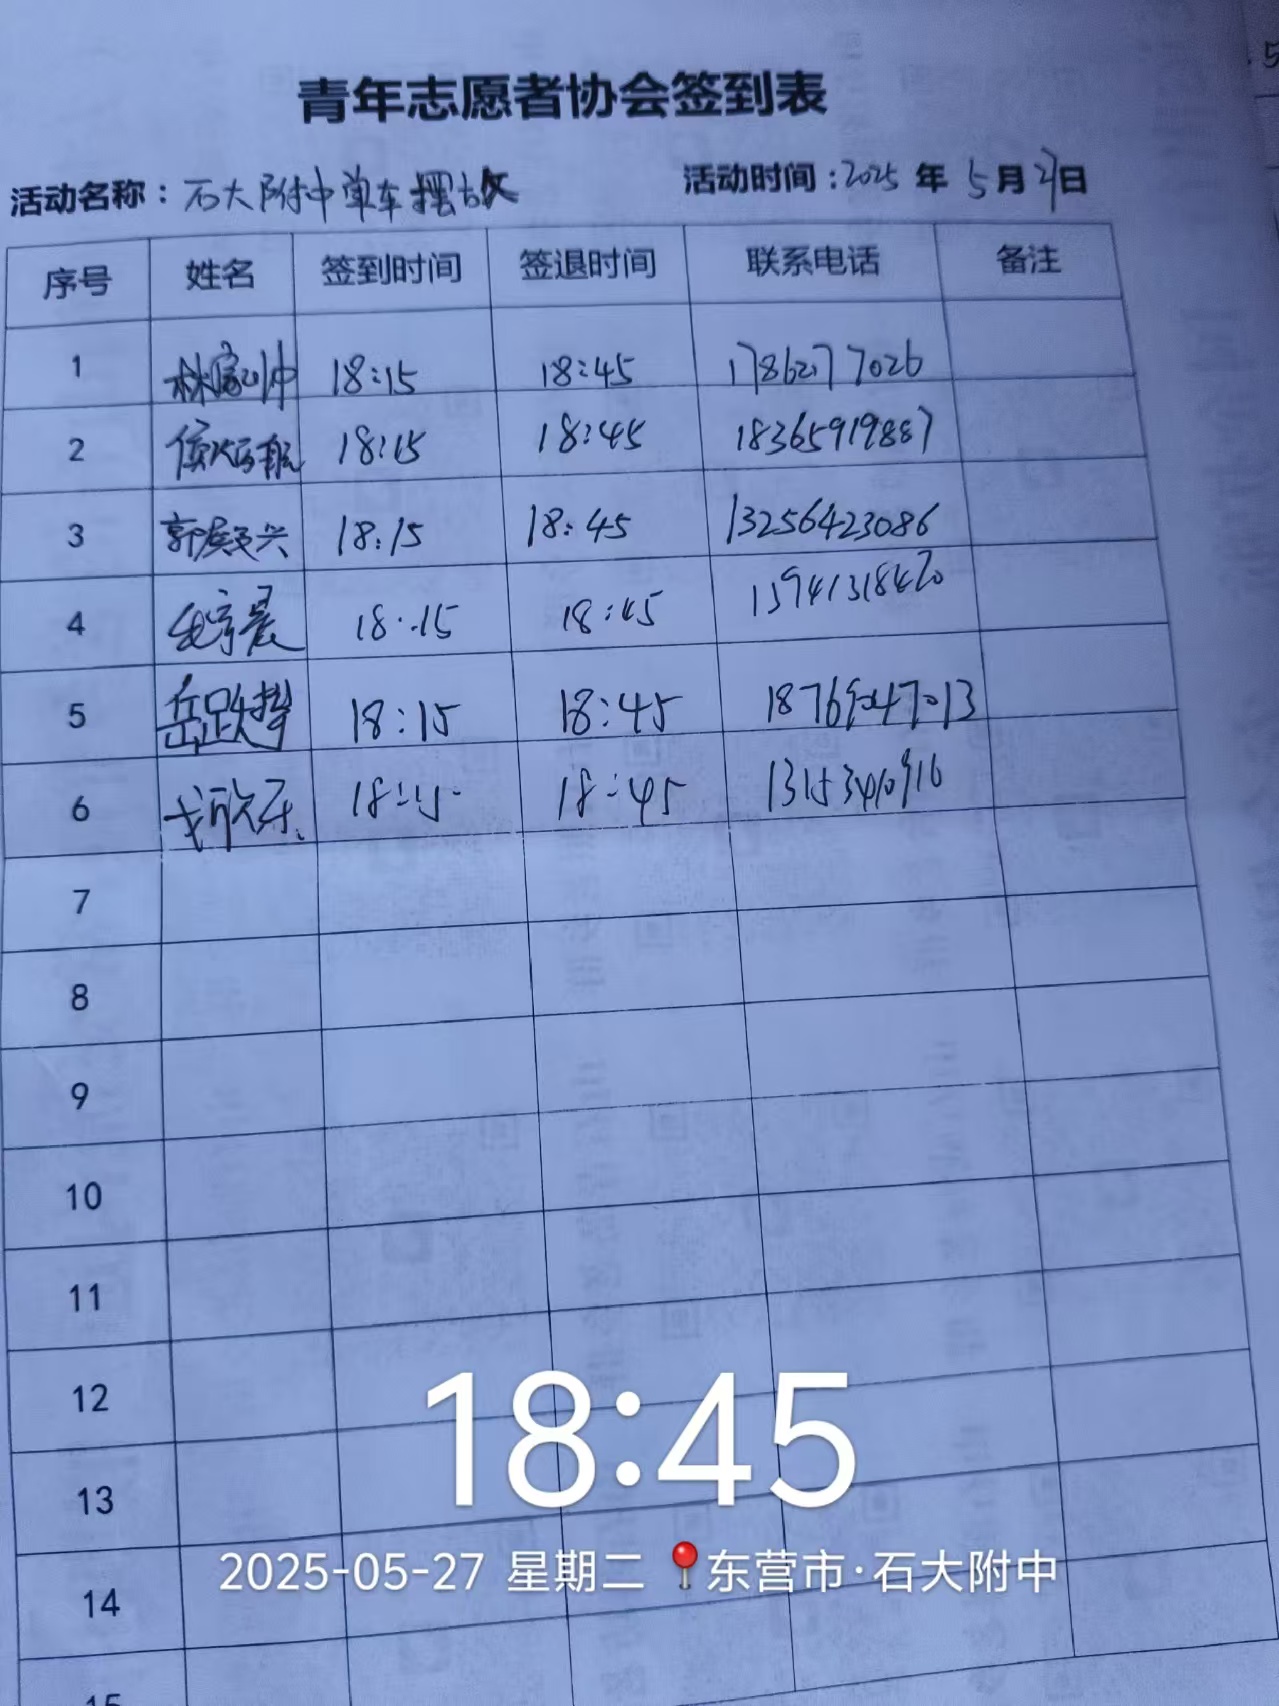 青年志愿者协会签到表
活动名称：石大附中单车摆放 活动时间：2025年5月27日
序号 姓名 签到时间 签退时间 联系电话 备注
1 18:15 18:45 17862777026
2 18:15 18:45 18365919887
3 18:15 18:45 13256423086
4 18:15 18:45 15941318420
5 18:15 18:45 18769047013
6 戈欣乐 18:15 18:45
7
8
9
10
11
12
13
14
15
18:45
2025-05-27 星期二 📍东营市·石大附中